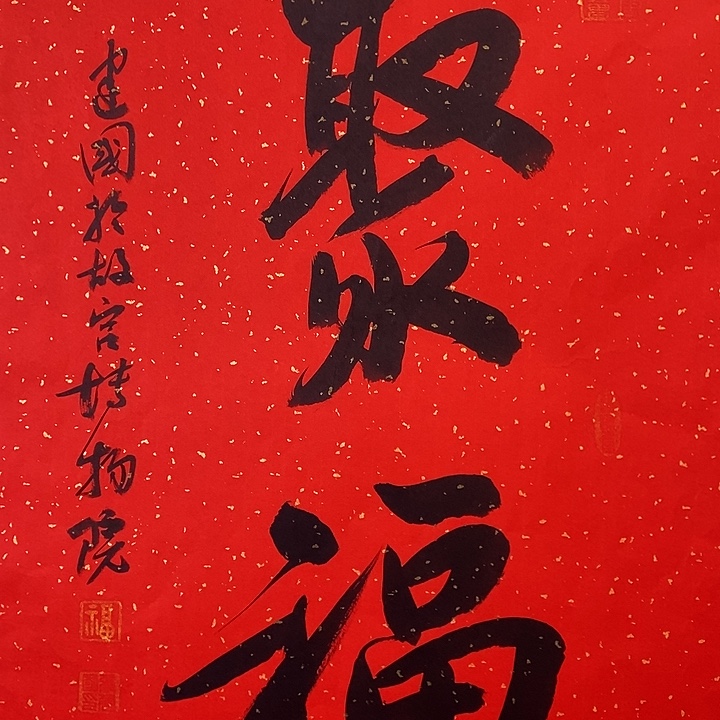 聚福
建國於故宮博物院
福